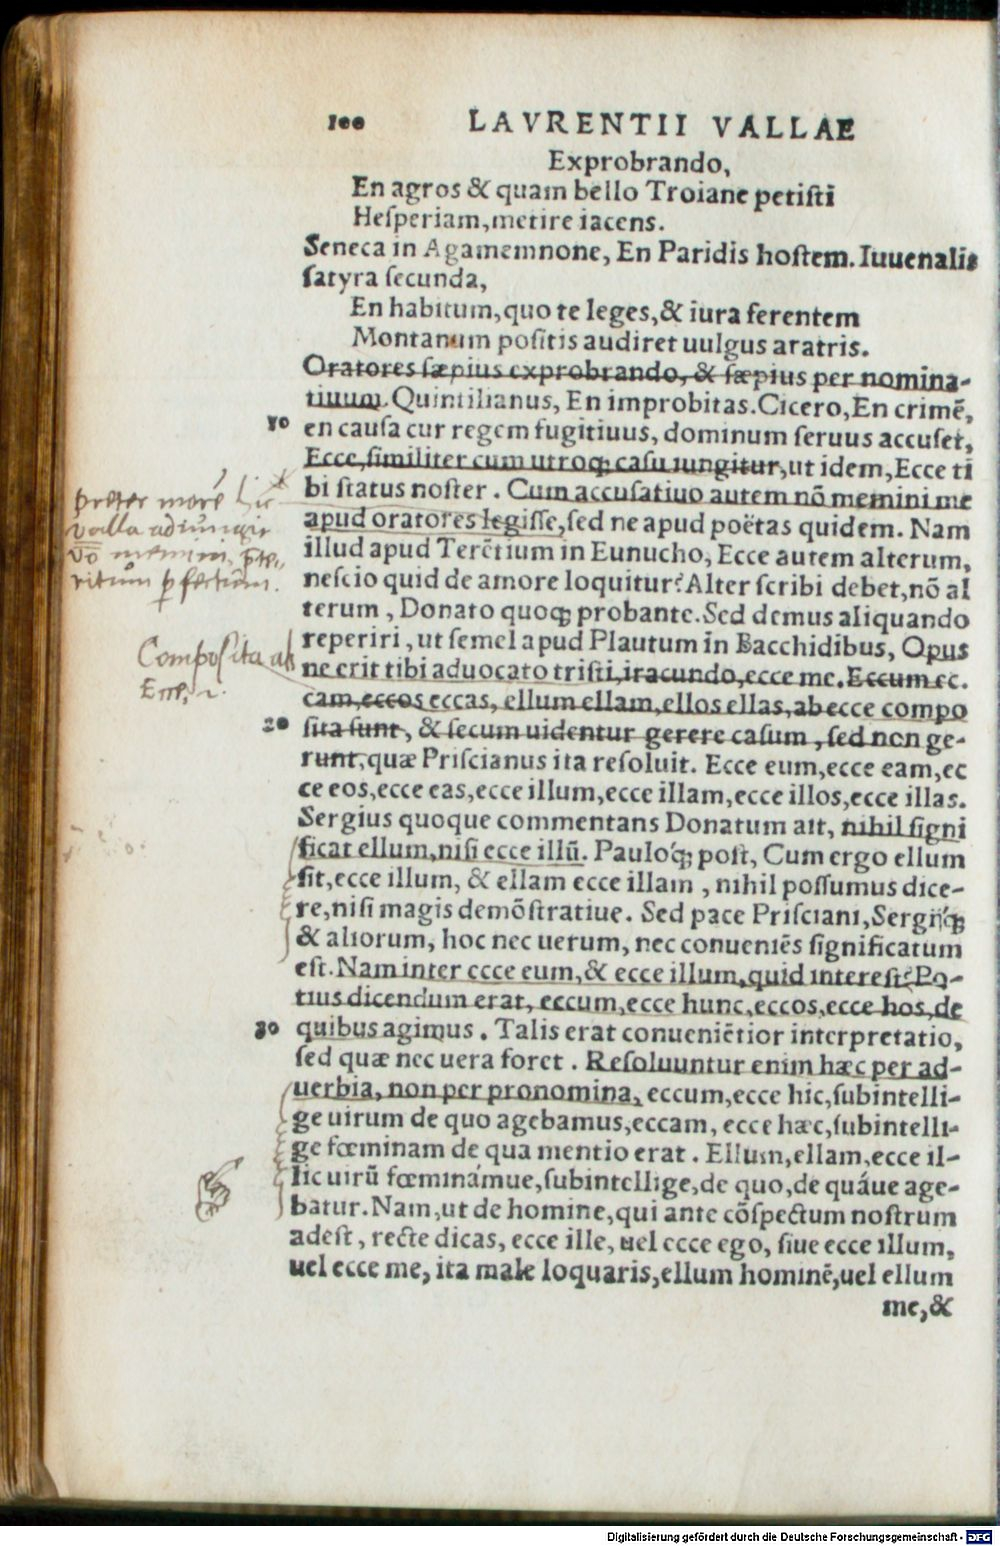 100 LAVRENTII VALLAE
Exprobrando,
En agros & quam bello Troiane petiſti
Heſperiam, metire iacens.
Seneca in Agamemnone, En Paridis hoſtem. Iuuenalis
ſatyra ſecunda,
En habitum, quo te leges, & iura ferentem
Montanum poſitis audiret uulgus aratris.
Oratores ſæpius exprobrando, & ſæpius per nomina-
tiuum. Quintilianus, En improbitas. Cicero, En crimē,
10 en cauſa cur regem fugitiuus, dominum ſeruus accuſet,
Ecce, ſimiliter cum utroq; caſu iungitur, ut idem, Ecce ti
bi ſtatus noſter. Cum accuſatiuo autem nō memini me
apud oratores legiſſe, ſed ne apud poëtas quidem. Nam
illud apud Terētium in Eunucho, Ecce autem alterum,
neſcio quid de amore loquitur? Alter ſcribi debet, nō al
terum, Donato quoq; probante. Sed demus aliquando
reperiri, ut ſemel apud Plautum in Bacchidibus, Opus
ne erit tibi aduocato triſti, iracundo, ecce me. Eccum ec.
cam, eccos eccas, ellum ellam, ellos ellas, ab ecce compo
20 ſita ſunt, & ſecum uidentur gerere caſum, ſed non ge-
runt, quæ Priſcianus ita reſoluit. Ecce eum, ecce eam, ec
ce eos, ecce eas, ecce illum, ecce illam, ecce illos, ecce illas.
Sergius quoque commentans Donatum ait, nihil ſigni
ficat ellum, niſi ecce illū. Pauloq́; poſt, Cum ergo ellum
ſit, ecce illum, & ellam ecce illam, nihil poſſumus dice-
re, niſi magis demōſtratiue. Sed pace Priſciani, Sergijq́;
& aliorum, hoc nec uerum, nec conueniēs ſignificatum
eſt. Nam inter ecce eum, & ecce illum, quid intereſt? Po-
tius dicendum erat, eccum, ecce hunc, eccos, ecce hos, de
30 quibus agimus. Talis erat conueniētior interpretatio,
ſed quæ nec uera foret. Reſoluuntur enim hæc per ad-
uerbia, non per pronomina, eccum, ecce hic, ſubintelli-
ge uirum de quo agebamus, eccam, ecce hæc, ſubintelli-
ge fœminam de qua mentio erat. Ellum, ellam, ecce il-
lic uirū fœminámue, ſubintellige, de quo, de quáue age-
batur. Nam, ut de homine, qui ante cōſpectum noſtrum
adeſt, recte dicas, ecce ille, uel ecce ego, ſiue ecce illum,
uel ecce me, ita male loquaris, ellum hominē, uel ellum
me, &
præter morē hic
valla adiungit
vō memini, præte-
ritum perfectum.
Composita ab
Ecce
Digitalisierung gefördert durch die Deutsche Forschungsgemeinschaft - DFG